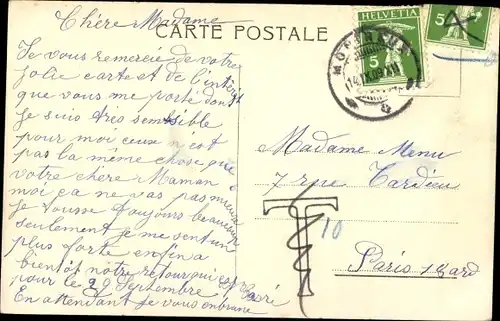 CARTE POSTALE
Chère Madame
Je vous remercie de votre
jolie carte et de l'intérêt
que vous me porte dont
je suis très sensible
pour moi ceux n'est
pas la même chose que
votre chère Maman
moi ça ne vas pas mieux
je tousse toujours beaucoup
seulement je me sent un
plus forte enfin a
bientôt notre retour qui est
pour le 29 Septembre
En attendant je vous embrasse
HELVETIA
5
5
14.IX.09
Madame Menu
7 rue Tardieu
T
10
Paris